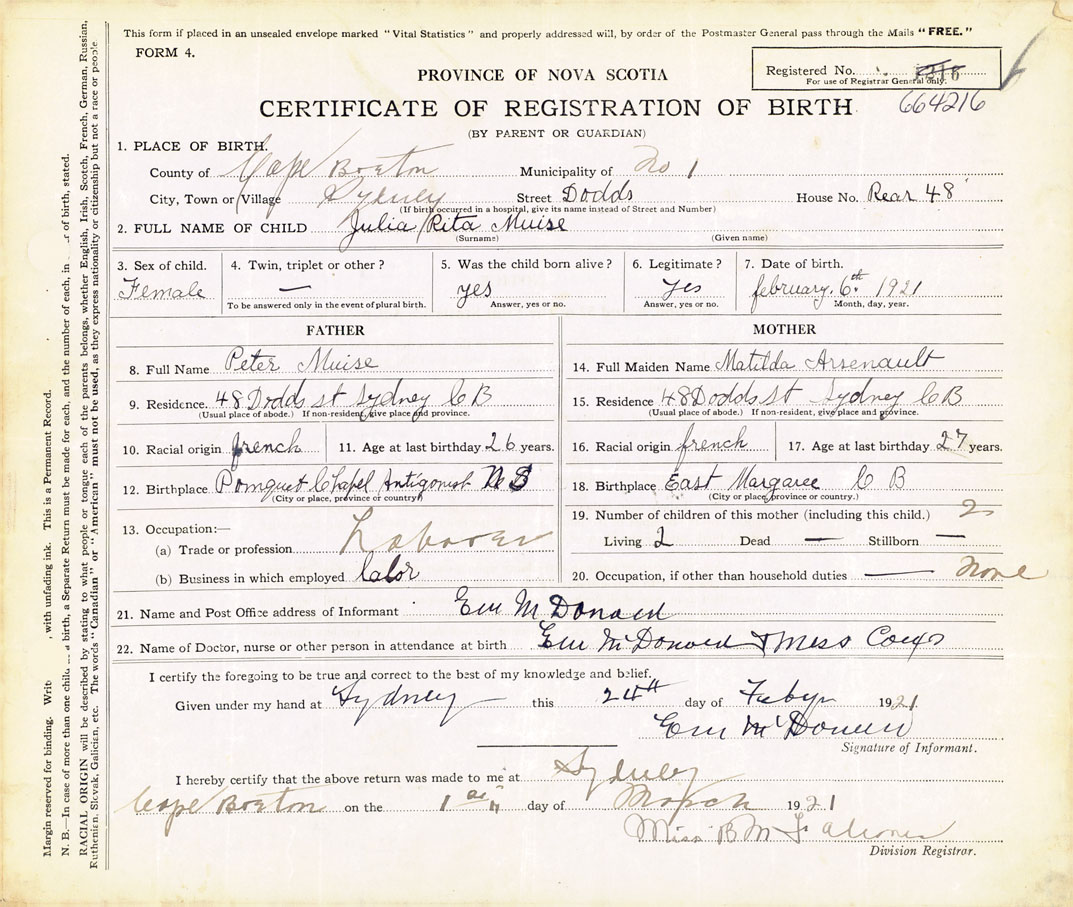 This form if placed in an unsealed envelope marked "Vital Statistics" and properly addressed will, by order of the Postmaster General pass through the Mails "FREE."
FORM 4.
Registered No.
For use of Registrar General only.
PROVINCE OF NOVA SCOTIA
664216
CERTIFICATE OF REGISTRATION OF BIRTH
(BY PARENT OR GUARDIAN)
1. PLACE OF BIRTH.
County of Cape Breton Municipality of No 1
City, Town or Village Sydney Street Dodds House No. Rear 48
(If birth occurred in a hospital, give its name instead of Street and Number)
2. FULL NAME OF CHILD Julia Rita Muise
(Surname) (Given name)
3. Sex of child. 4. Twin, triplet or other? 5. Was the child born alive? 6. Legitimate? 7. Date of birth.
Female — yes yes february. 6th 1921
To be answered only in the event of plural birth. Answer, yes or no. Answer, yes or no. Month, day, year.
FATHER
8. Full Name Peter Muise
9. Residence. 48 Dodds st Sydney C B
(Usual place of abode.) If non-resident, give place and province.
10. Racial origin french 11. Age at last birthday 26 years.
12. Birthplace Pomquet Chapel Antigonish
(City or place, province or country)
13. Occupation:—
(a) Trade or profession Laborer
(b) Business in which employed labor
MOTHER
14. Full Maiden Name Matilda Arsenault
15. Residence 48 Dodds st Sydney C B
(Usual place of abode.) If non-resident, give place and province.
16. Racial origin french 17. Age at last birthday 27 years.
18. Birthplace East Margaree C B
(City or place, province or country.)
19. Number of children of this mother (including this child.) 2
Living 2 Dead — Stillborn —
20. Occupation, if other than household duties — None
21. Name and Post Office address of Informant
22. Name of Doctor, nurse or other person in attendance at birth
I certify the foregoing to be true and correct to the best of my knowledge and belief.
Given under my hand at Sydney this 24th day of 1921
Signature of Informant.
I hereby certify that the above return was made to me at Sydney
Cape Breton on the 1 day of March 1921
Miss B M
Division Registrar.
Margin reserved for binding. with unfading ink. This is a Permanent Record.
N. B.—In case of more than one child a birth, a Separate Return must be made for each, and the number of each, in of birth, stated.
RACIAL ORIGIN will be described by stating to what people or tongue each of the parents belongs, whether English, Irish, Scotch, French, German, Russian,
Ruthenian, Slovak, Galician, etc. The words "Canadian" or "American" must not be used, as they express nationality or citizenship but not a race or people